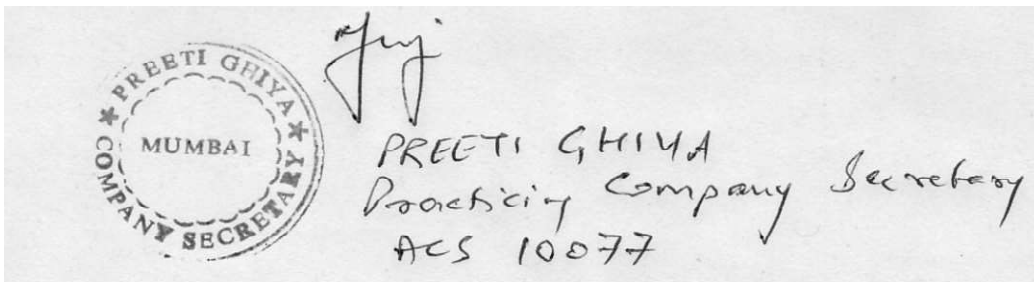 ★ PREETI GHIYA ★
COMPANY SECRETARY
MUMBAI
PREETI GHIYA
Practicing Company Secretary
ACS 10077